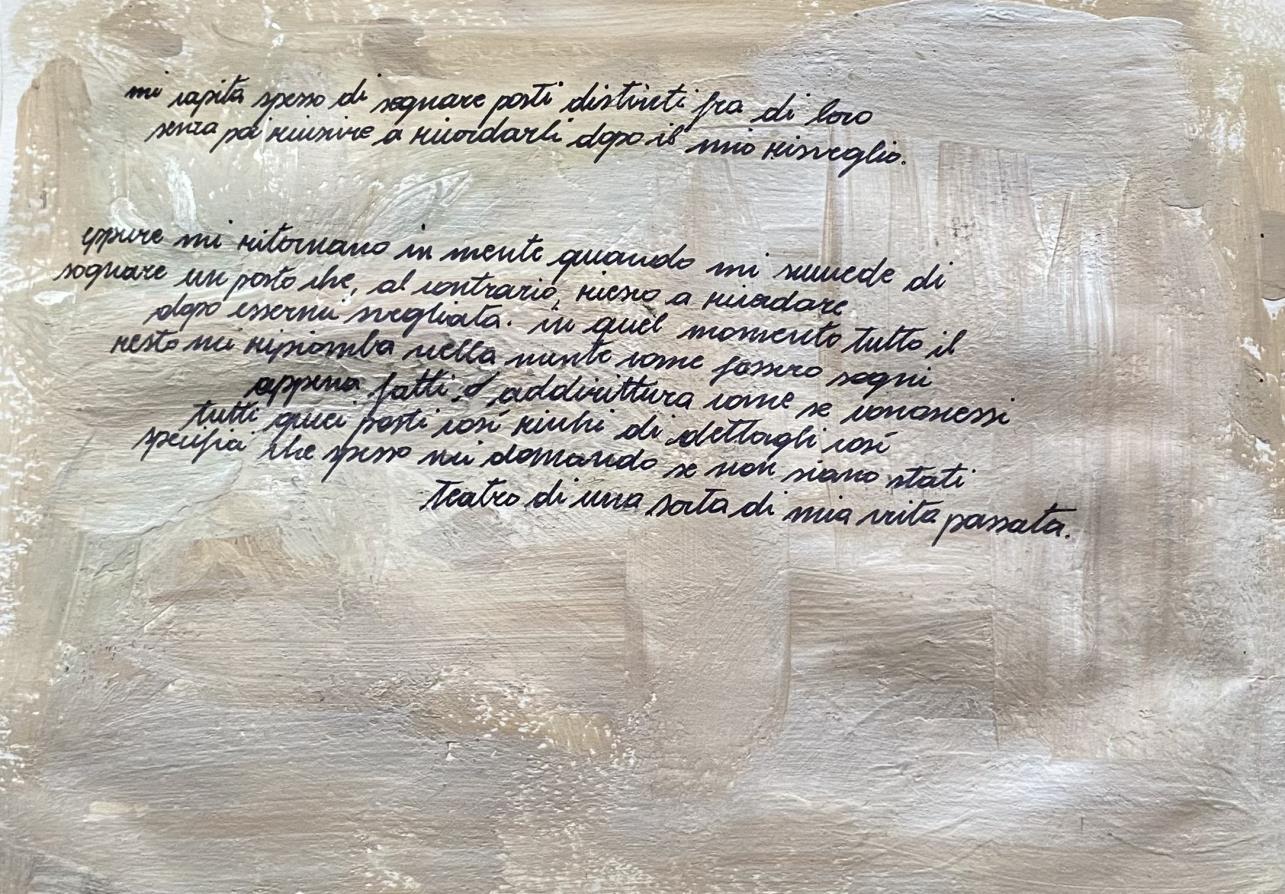 mi capita spesso di sognare posti distinti fra di loro
senza poi riuscire a ricordarli dopo il mio risveglio.
eppure mi ritornano in mente quando mi succede di
sognare un posto che, al contrario, riesco a ricordare
dopo essermi svegliata. in quel momento tutto il
resto mi ripiomba nella mente come fossero sogni
appena fatti, o addirittura come se conoscessi
tutti quei posti così ricchi di dettagli così
specifici che spesso mi domando se non siano stati
teatro di una sorta di mia vita passata.